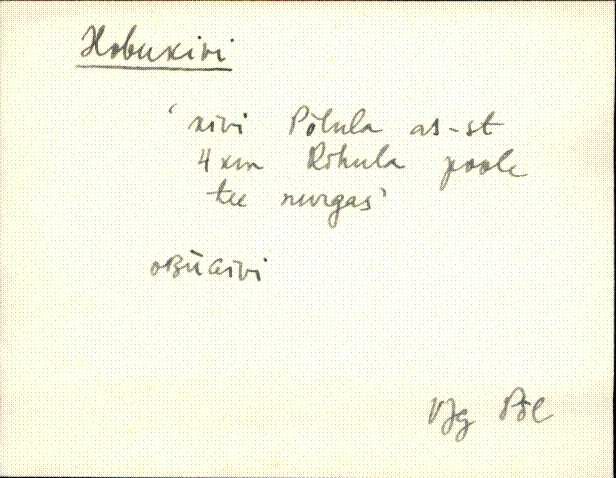 Hobukivi
‘kivi Põlula as-st
4 km Rõhula poole
tee nurgas’
Vjg Põl